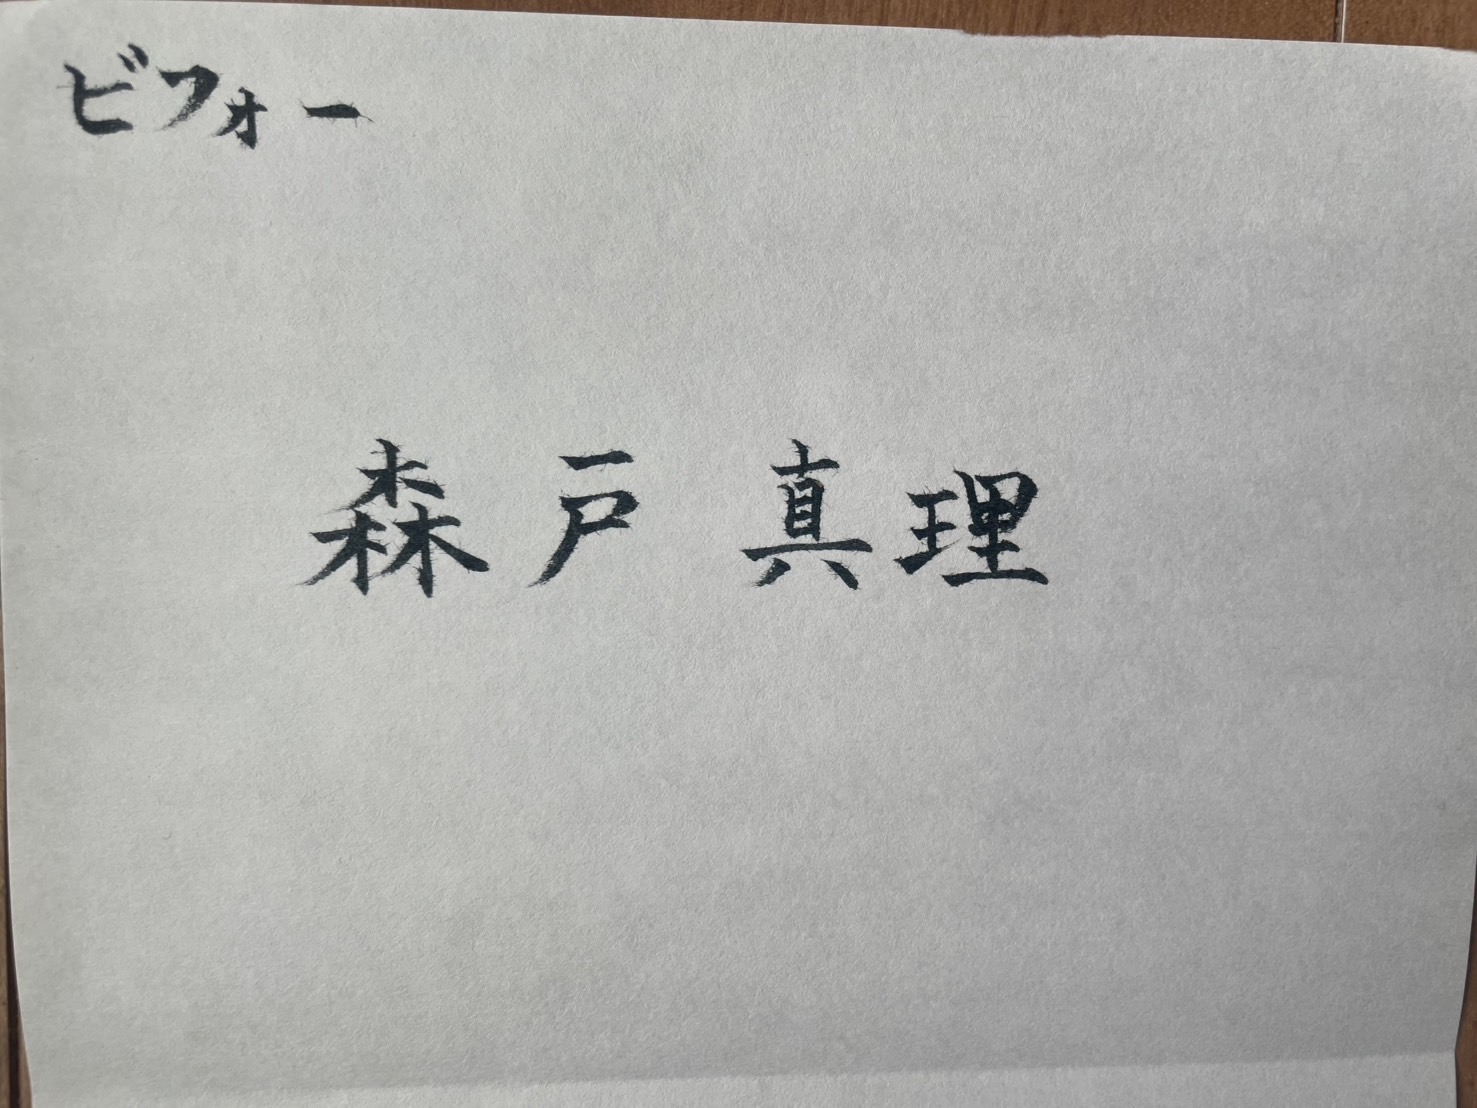 ビフォー
森戸 真理